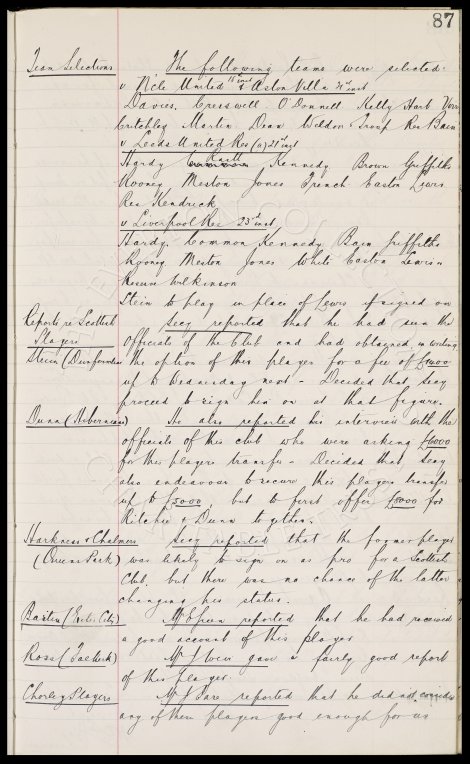 87
Team Selections The following teams were selected:
v N'cle United 18th inst & Aston Villa 21st inst
Davies. Cresswell O'Donnell Kelly Hart Virr
Critchley Martin Dean Weldon Troup Res Bain
v Leeds United Res (a) 21st inst
Hardy Raitt Kennedy Brown Griffiths
Rooney Meston Jones French Easton Lewis
Res Kendrick
v Liverpool Res 23rd inst
Hardy. Common Kennedy Bain Griffiths
Rooney Meston Jones White Easton Lewis -
Reserve Wilkinson
Stein to play in place of Lewis if signed on
Reports re Scottish Secy reported that he had seen the
Players officials of the Club and had obtained in writing
Stein (Dunfermline the option of this player for a fee of
up to Wednesday next - Decided that Secy
proceed to sign him on at that figure.
Dunn (Hibernians) He also reported his interview with the
officials of this club who were asking £6000
for this players transfer - Decided that Secy
also endeavour to secure this players transfer
up to £5000, but to first offer £8000 for
Ritchie & Dunn together.
Harkness & Chalmers Secy reported that the former player
(Queens Park) was likely to sign on as pro for a Scottish
Club, but there was no chance of the latter
changing his status.
Baxter (Exeter City) Mr reported that he had received
a good account of this player
Ross (Falkirk) Mr gave a fairly good report
of this player.
Chorley Players Mr reported that he did not consider
any of these players good enough for us